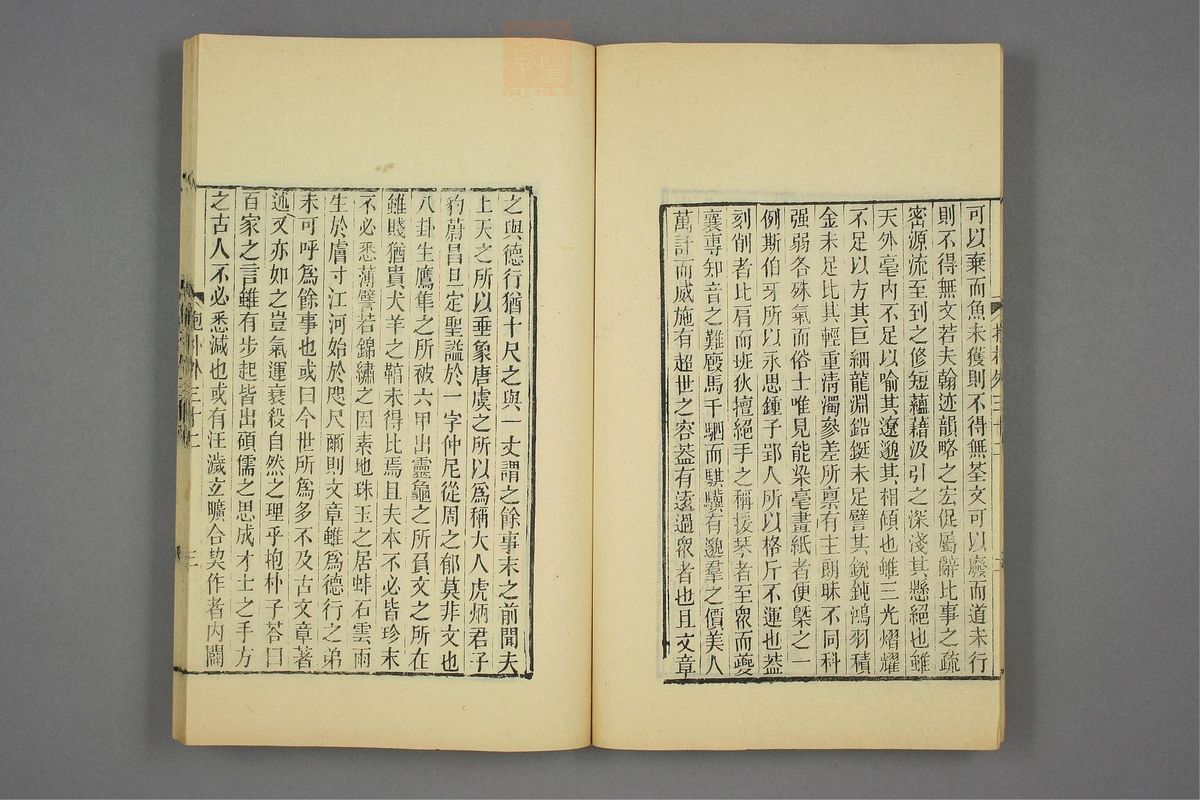 可以棄而魚未獲則不得無筌文可以廢而道未行
則不得無文若夫翰迹韻略之宏促屬辭比事之疏
密源流至到之修短蘊藉汲引之深淺其懸絕也雖
天外毫內不足以喻其遼邈其相傾也雖三光熠耀
不足以方其巨細龍淵鉛鋌未足譬其銳鈍鴻羽積
金未足比其輕重清濁參差所稟有主朗昧不同科
强弱各殊氣而俗士唯見能染毫畫紙者便槩之一
例斯伯牙所以永思鍾子郢人所以格斤不運也葢
刻削者比肩而班狄擅絕手之稱援琴者至眾而夔
襄專知音之難廏馬千駟而騏驥有邈羣之價美人
萬計而威施有超世之容葢有遠過眾者也且文章
之與德行猶十尺之與一丈謂之餘事未之前聞夫
上天之所以垂象唐虞之所以爲稱大人虎炳君子
豹蔚昌旦定聖謚於一字仲尼從周之郁莫非文也
八卦生鷹隼之所被六甲出靈龜之所負文之所在
雖賤猶貴犬羊之鞹未得比焉且夫本不必皆珍末
不必悉薄譬若錦繡之因素地珠玉之居蚌石雲雨
生於膚寸江河始於咫尺爾則文章雖爲德行之弟
未可呼爲餘事也或曰今世所爲多不及古文章著
述又亦如之豈氣運衰殺自然之理乎抱朴子荅曰
百家之言雖有步起皆出碩儒之思成才士之手方
之古人不必悉減也或有汪濊玄曠合契作者內闢
抱朴外三十二
三